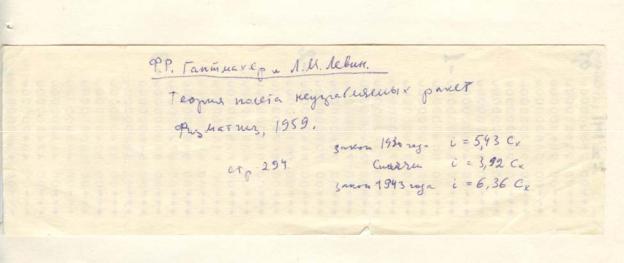 Ф.Р. Гантмахер и Л.М. Левин.
Теория полета неуправляемых ракет
Физматгиз, 1959.
стр 294
закон 1930 года i = 5,43 Cx
Сиаччи i = 3,92 Cx
закон 1943 года i = 6,36 Cx